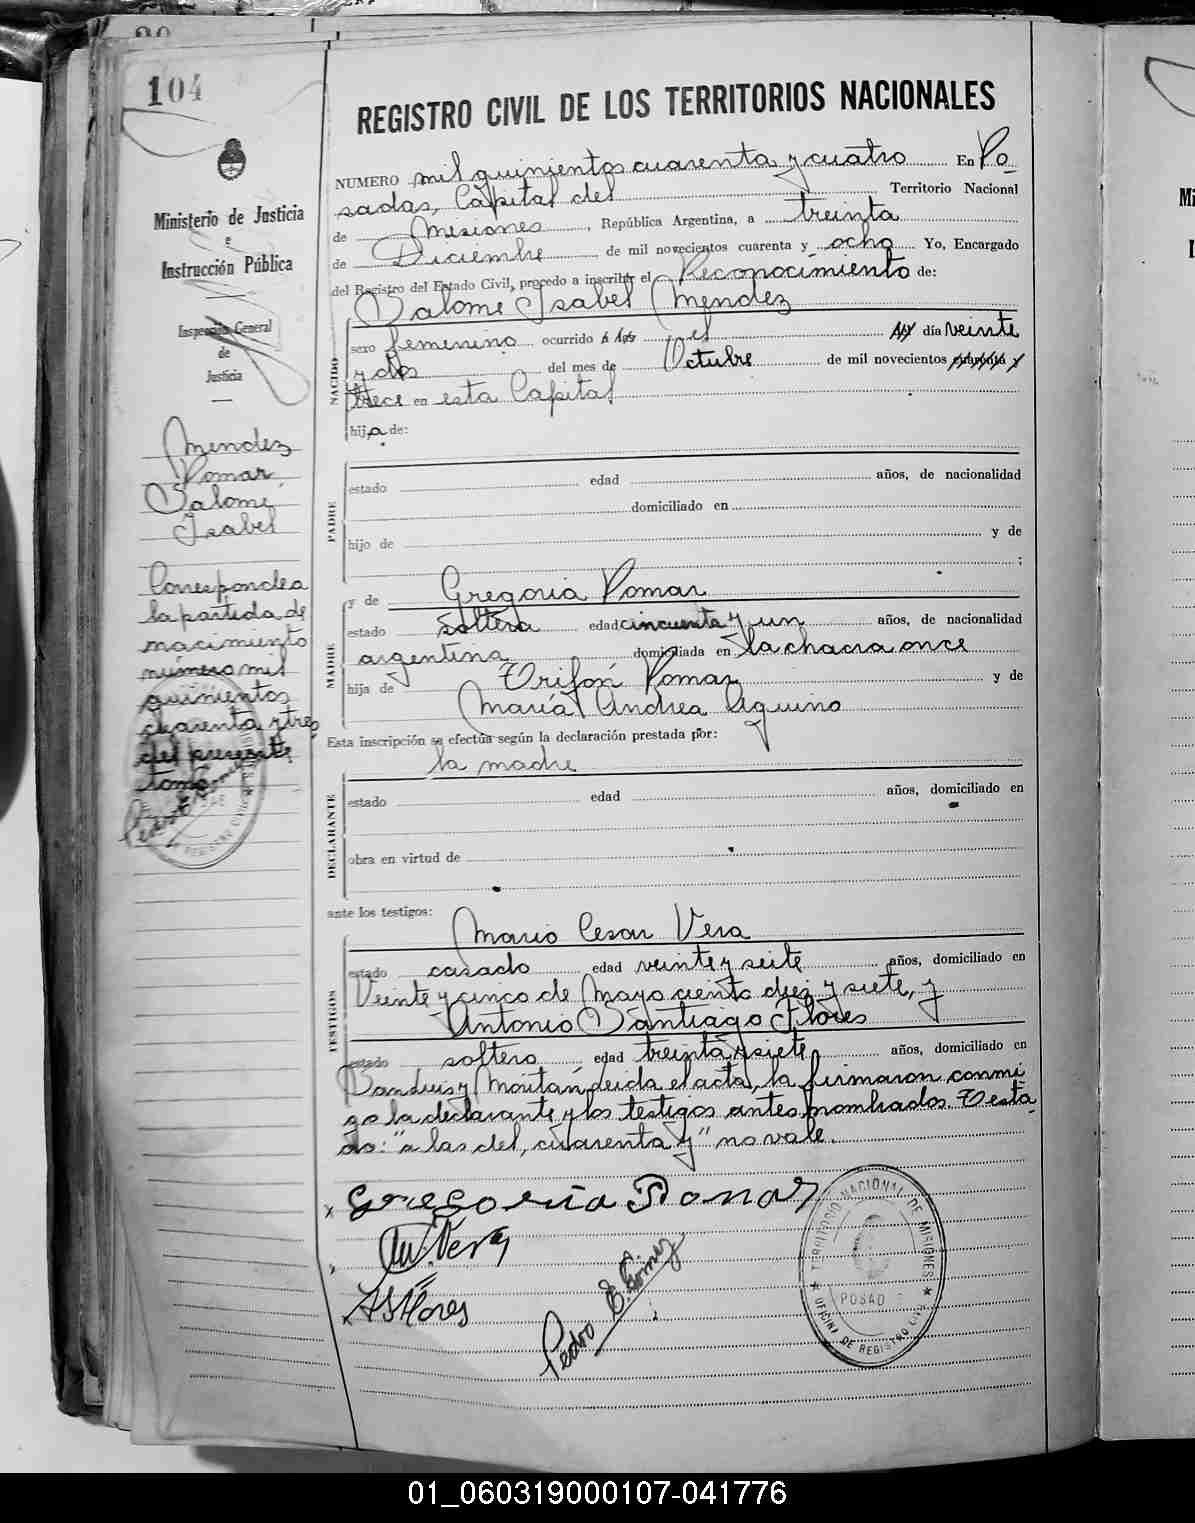 104
Ministerio de Justicia
e
Instrucción Pública
Inspección General
de
Justicia
Mendez
Pomar
Salomé
Isabel
Corresponde a
la partida de
nacimiento
número mil
quinientos
cuarenta y tres
del presente
tomo
REGISTRO CIVIL DE LOS TERRITORIOS NACIONALES
NUMERO mil quinientos cuarenta y cuatro En Po
sadas, Capital del Territorio Nacional
de Misiones, República Argentina, a treinta
de Diciembre de mil novecientos cuarenta y ocho Yo, Encargado
del Registro del Estado Civil, procedo a inscribir el Reconocimiento de:
Salome Isabel Mendez
NACIDO
sexo femenino ocurrido a las el del día veinte
y dos del mes de Octubre de mil novecientos cuarenta y
trece en esta Capital
hija de:
PADRE
estado edad años, de nacionalidad
domiciliado en
hijo de y de
;
MADRE
y de Gregoria Pomar
estado soltera edad cincuenta y un años, de nacionalidad
argentina domiciliada en la chacra once
hija de Trifón Pomar y de
María Andrea Aquino
Esta inscripción se efectúa según la declaración prestada por:
la madre
DECLARANTE
estado edad años, domiciliado en
obra en virtud de
ante los testigos:
TESTIGOS
Mario Cesar Vera
estado casado edad veinte y seite años, domiciliado en
Veinte y cinco de Mayo ciento diez y siete, y
Antonio Santiago Flores
estado soltero edad treinta y siete años, domiciliado en
Leida el acta, la firmaron conmi
go la declarante y los testigos antes nombrados. Testa
do: "a las del, cuarenta y" no vale.
Gregoria Pomar
M. Vera
A S Flores
Pedro E. Gómez
TERRITORIO NACIONAL DE MISIONES
POSADAS
OFICINA DE REGISTRO CIVIL
01_060319000107-041776